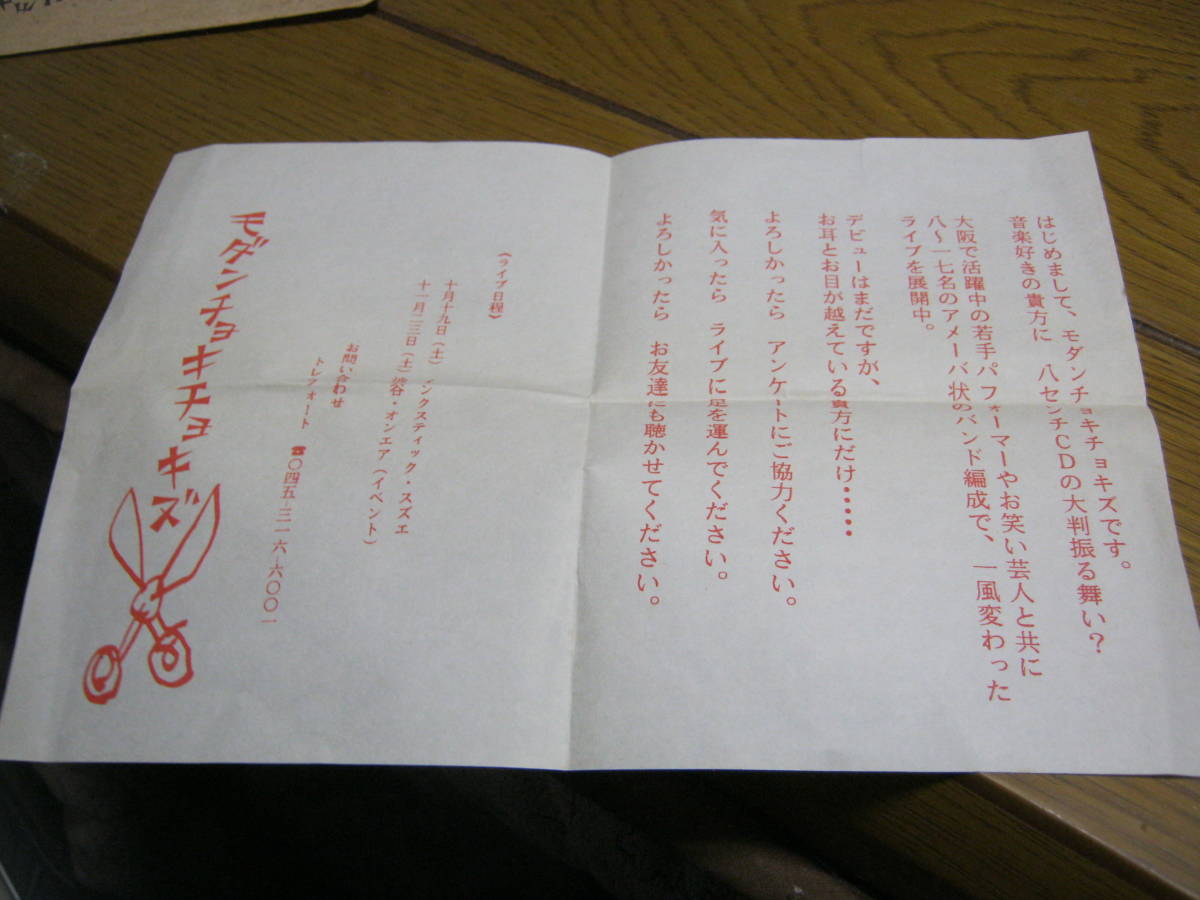 はじめまして、モダンチョキチョキズです。
音楽好きの貴方に 八センチCDの大判振る舞い?
大阪で活躍中の若手パフォーマーやお笑い芸人と共に
八〜一七名のアメーバ状のバンド編成で、一風変わった
ライブを展開中。
デビューはまだですが、
お耳とお目が越えている貴方にだけ・・・・・
よろしかったら アンケートにご協力ください。
気に入ったら ライブに足を運んでください。
よろしかったら お友達にも聴かせてください。
《ライブ日程》
十月十九日(土) インクスティック・スズエ
十一月二三日(土)渋谷・オンエア(イベント)
お問い合わせ
トレフォート ☎〇四五-三一六-六〇〇一
モダンチョキチョキズ